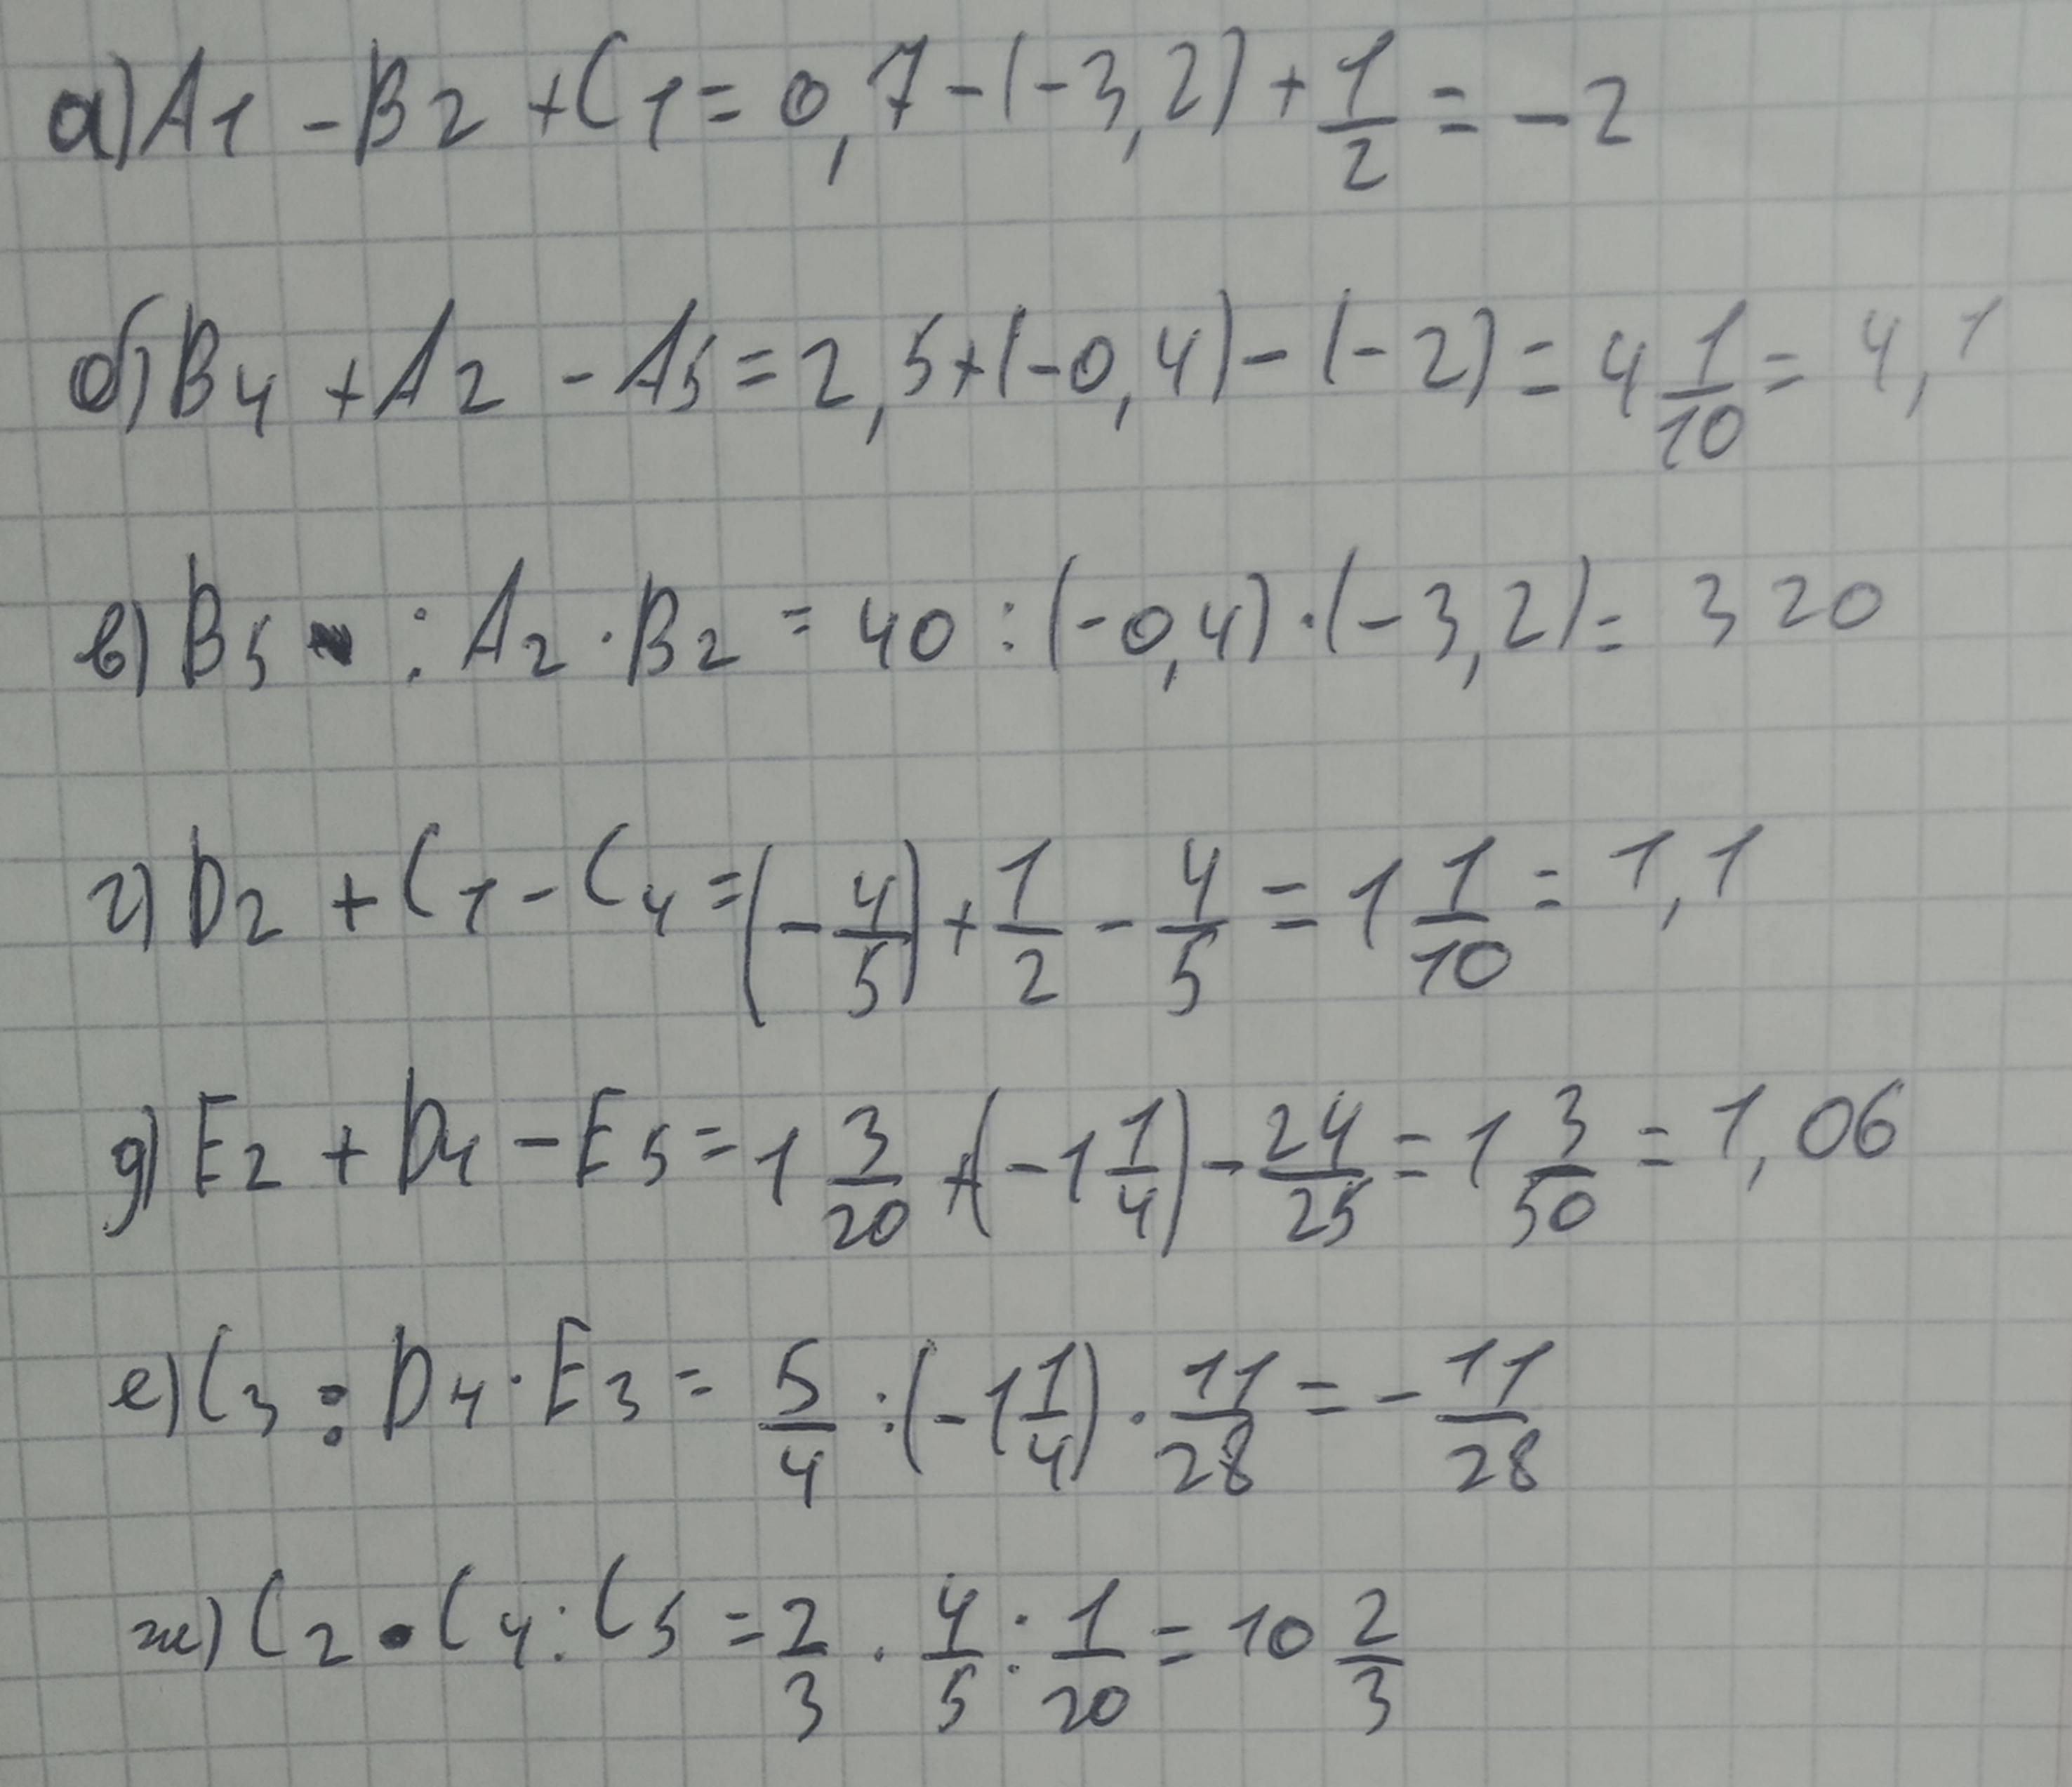 а) A1 - B2 + C1 = 0,7 - (-3,2) + 1/2 = -2
б) B4 + A2 - A5 = 2,5 + (-0,4) - (-2) = 4 1/10 = 4,1
в) B5 : A2 · B2 = 40 : (-0,4) · (-3,2) = 320
г) D2 + C1 - C4 = (-4/5) + 1/2 - 4/5 = 1 1/10 = 1,1
д) E2 + D4 - E5 = 1 3/20 + (-1 1/4) - 24/25 = 1 3/50 = 1,06
е) C3 : D4 · E3 = 5/4 : (-1 1/4) · 11/28 = - 11/28
ж) C2 · C4 : C5 = 2/3 · 4/5 : 1/20 = 10 2/3